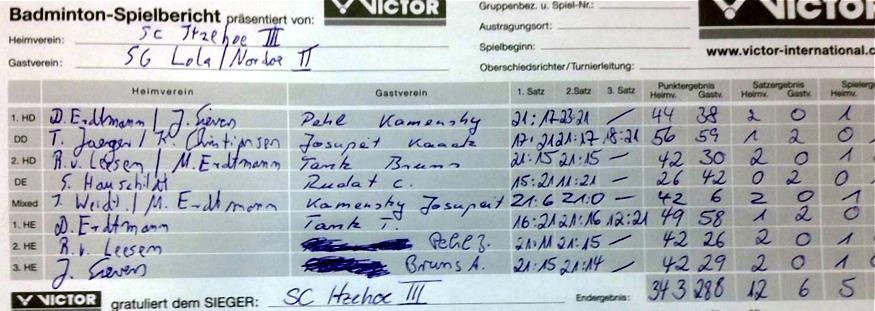 Badminton-Spielbericht präsentiert von: VICTOR Gruppenbez. u. Spiel-Nr.: VICTOR
Heimverein: SC Itzehoe III Austragungsort:
Gastverein: SG Lola / Nordoe II Spielbeginn: www.victor-international.c
Oberschiedsrichter/Turnierleitung:
Heimverein Gastverein 1. Satz 2. Satz 3. Satz Punktergebnis Satzergebnis Spielerg
Heimv. Gastv. Heimv. Gastv. Heimv.
1. HD D. Erdtmann / J. Sieven Pehl Kamensky 21:17 23:21 / 44 38 2 0 1
DD T. Jaeger / K. Christiansen Josupeit Kaack 17:21 21:17 18:21 56 59 1 2 0
2. HD R. v. Leesen / M. Erdtmann Tank Bruns 21:15 21:15 - 42 30 2 0 1
DE S. Hauschildt Rudat C. 15:21 11:21 - 26 42 0 2 0
Mixed J. Weidt. / M. Erdtmann Kamensky Josupeit 21:6 21:0 - 42 6 2 0 1
1. HE D. Erdtmann Tank T. 16:21 21:16 12:21 49 58 1 2 0
2. HE R. v. Leesen Pehl J. 21:11 21:15 - 42 26 2 0 1
3. HE J. Sieven Bruns A. 21:15 21:14 / 42 29 2 0 1
VICTOR gratuliert dem SIEGER: SC Itzehoe III Endergebnis: 343 288 12 6 5